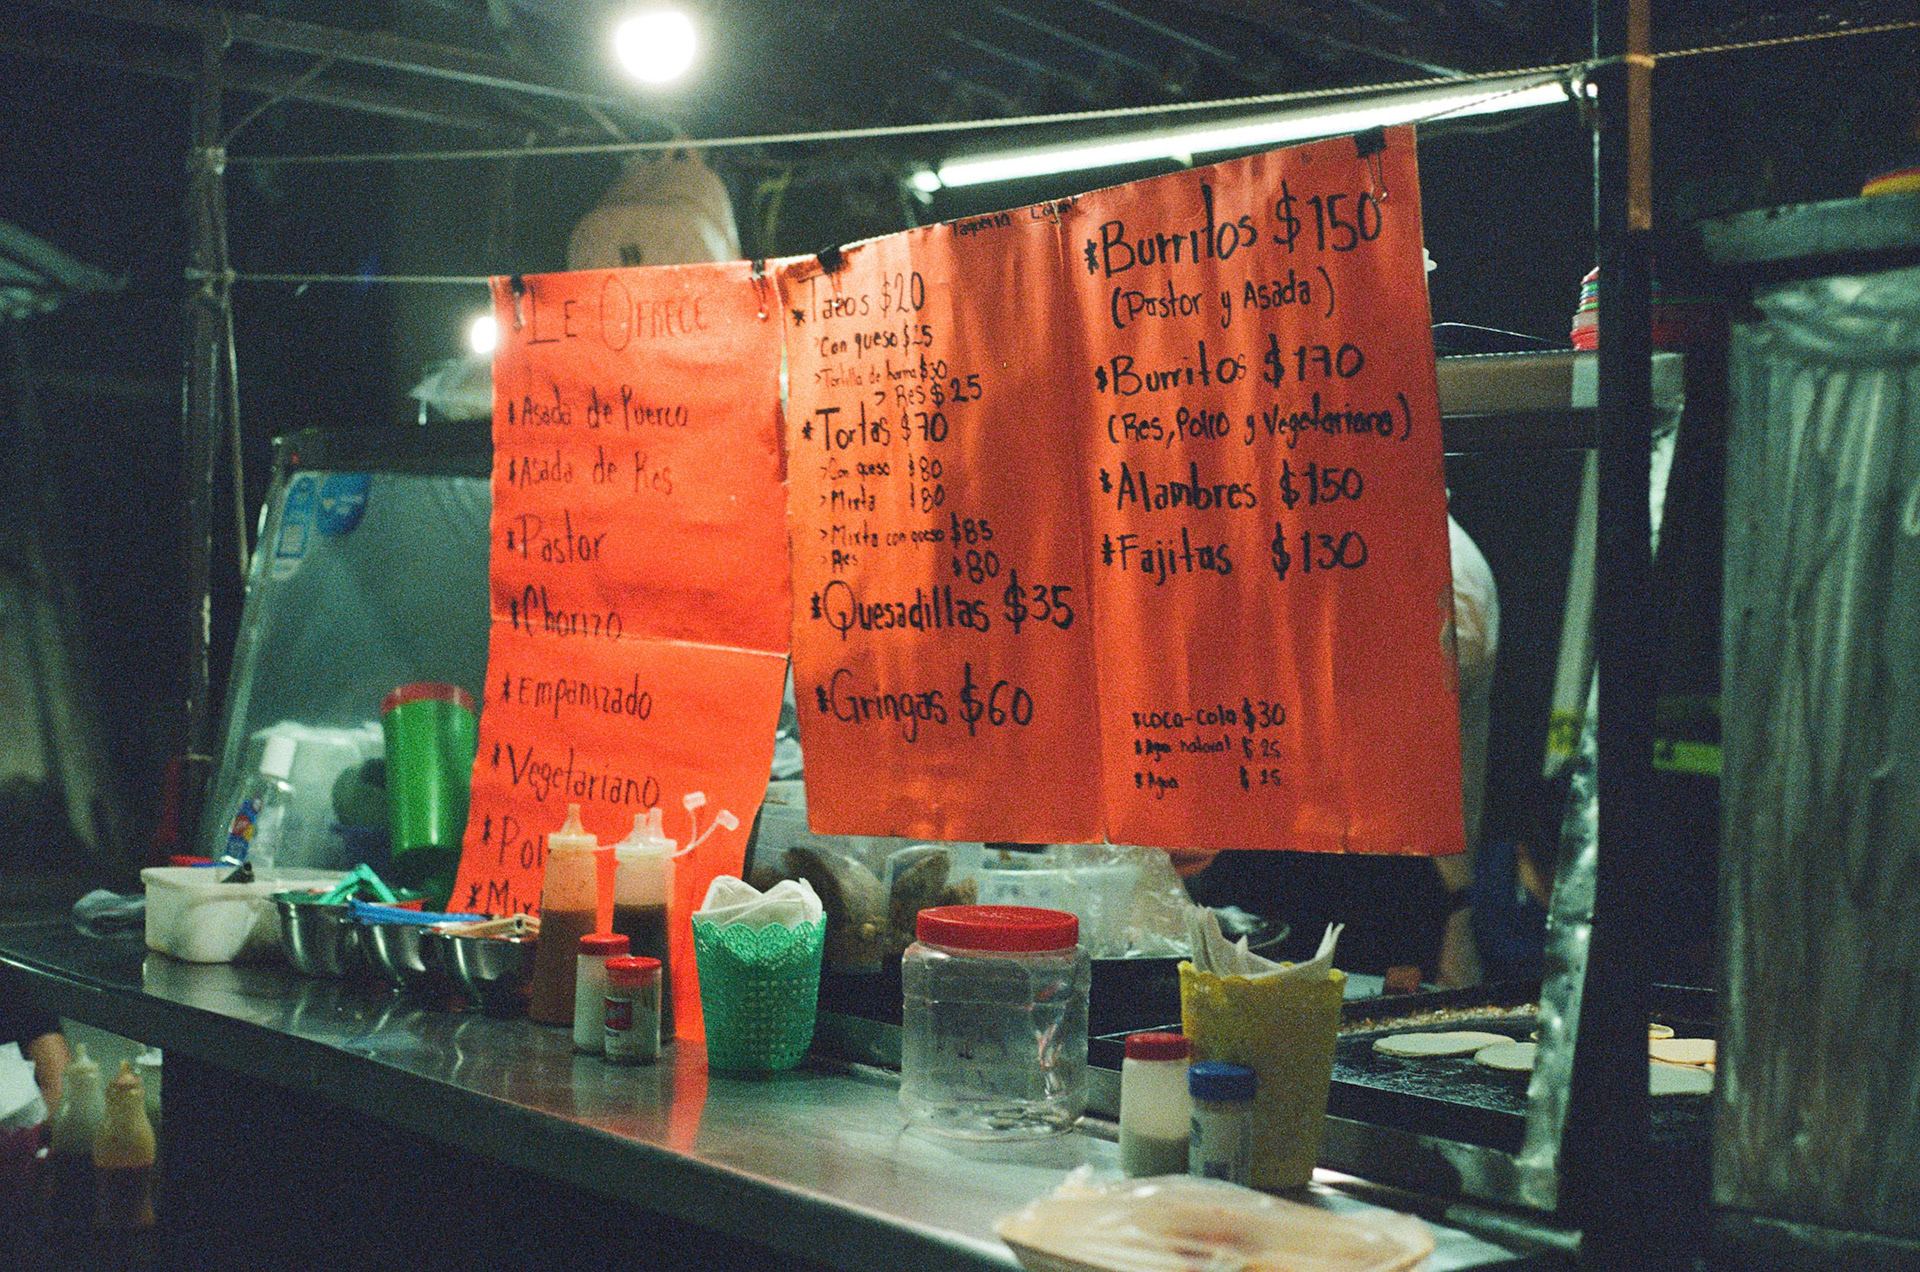 Le Ofrece
* Asada de Puerco
* Asada de Res
* Pastor
* Chorizo
* Empanizado
* Vegetariano
* Pol
* Mix
Taqueria
* Tacos $20
> Con queso $25
> Tortilla de harina $30
> Res $25
* Tortas $70
> Con queso $80
> Mixta $80
> Mixta con queso $85
> Res $80
* Quesadillas $35
* Gringas $60
* Burritos $150
(Pastor y Asada)
* Burritos $170
(Res, Pollo y Vegetariano)
* Alambres $150
* Fajitas $130
* Coca-cola $30
* Agua natural $25
* Agua $25